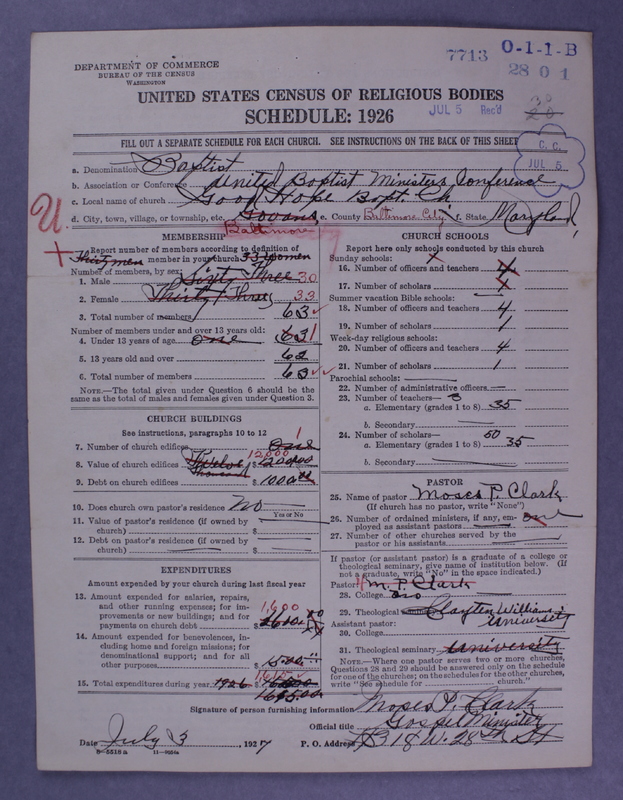 DEPARTMENT OF COMMERCE
BUREAU OF THE CENSUS
WASHINGTON
7713 O-1-1-B
2801
UNITED STATES CENSUS OF RELIGIOUS BODIES
JUL 5 Rec'd
SCHEDULE: 1926
FILL OUT A SEPARATE SCHEDULE FOR EACH CHURCH. SEE INSTRUCTIONS ON THE BACK OF THIS SHEET
C. C.
JUL 5
a. Denomination Baptist
b. Association or Conference United Baptist Ministers Conference
c. Local name of church Good Hope Bapt. Ch
d. City, town, village, or township, etc. Govans e. County Baltimore City f. State Maryland
Baltimore
MEMBERSHIP
Report number of members according to definition of
member in your church 33 Women
Thirty men
Number of members, by sex:
1. Male Sixty Three 30
2. Female Thirty Three 33
3. Total number of members 63
Number of members under and over 13 years old:
4. Under 13 years of age one 1
5. 13 years old and over 62
6. Total number of members 63
NOTE.—The total given under Question 6 should be
the same as the total of males and females given under Question 3.
CHURCH BUILDINGS
See instructions, paragraphs 10 to 12
7. Number of church edifices One 1
8. Value of church edifices Twelve Thousand $ 12000 12,000
9. Debt on church edifices $ 1000
10. Does church own pastor's residence No
Yes or No
11. Value of pastor's residence (if owned by
church) $
12. Debt on pastor's residence (if owned by
church) $
EXPENDITURES
Amount expended by your church during last fiscal year
13. Amount expended for salaries, repairs,
and other running expenses; for im-
provements or new buildings; and for
payments on church debt $ 1600 1,600
14. Amount expended for benevolences, in-
cluding home and foreign missions; for
denominational support; and for all
other purposes
15. Total expenditures during year 1926 $
CHURCH SCHOOLS
Report here only schools conducted by this church
Sunday schools:
16. Number of officers and teachers 4
17. Number of scholars
Summer vacation Bible schools:
18. Number of officers and teachers 4
19. Number of scholars 1
Week-day religious schools:
20. Number of officers and teachers 4
21. Number of scholars 1
Parochial schools:
22. Number of administrative officers
23. Number of teachers— 3
a. Elementary (grades 1 to 8) 35
b. Secondary
24. Number of scholars— 50
a. Elementary (grades 1 to 8) 35
b. Secondary
PASTOR
25. Name of pastor Moses P. Clark
(If church has no pastor, write "None")
26. Number of ordained ministers, if any, em-
ployed as assistant pastors one
27. Number of other churches served by the
pastor or his assistants
If pastor (or assistant pastor) is a graduate of a college or
theological seminary, give name of institution below. (If
not a graduate, write "No" in the space indicated.)
Pastor: M. P. Clark
28. College
29. Theological Clayton Williams University
Assistant pastor:
30. College
31. Theological seminary University
NOTE.—Where one pastor serves two or more churches,
Questions 28 and 29 should be answered only on the schedule
for one of the churches; on the schedules for the other churches,
write "See schedule for church."
Signature of person furnishing information Moses P. Clark
Official title Gospel Minister
Date July 3, 1927 P. O. Address 318 W. 28th St
8-5518a 11-9554